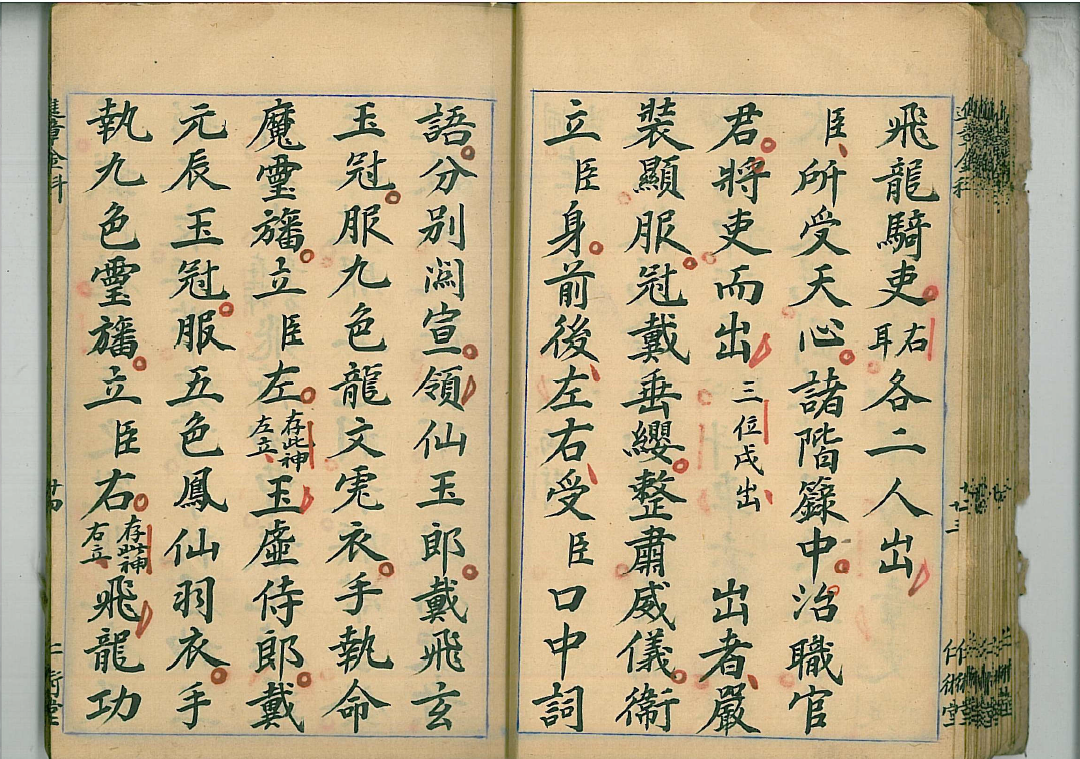 飛龍騎吏右耳各二人出
臣所受天心諸階籙中治職官
君將吏而出三位成出出者嚴
裝顯服冠戴垂纓整肅威儀衛
立臣身前後左右受臣口中詞
語分別闗宣領仙玉郎戴飛玄
玉冠服九色龍文𮓗衣手執命
魔靈旛立臣左存此神左立玉虛侍郎戴
元辰玉冠服五色鳳仙羽衣手
執九色靈旛立臣右存此神右立飛龍功
廿四
仁術堂
廿三
仁術堂